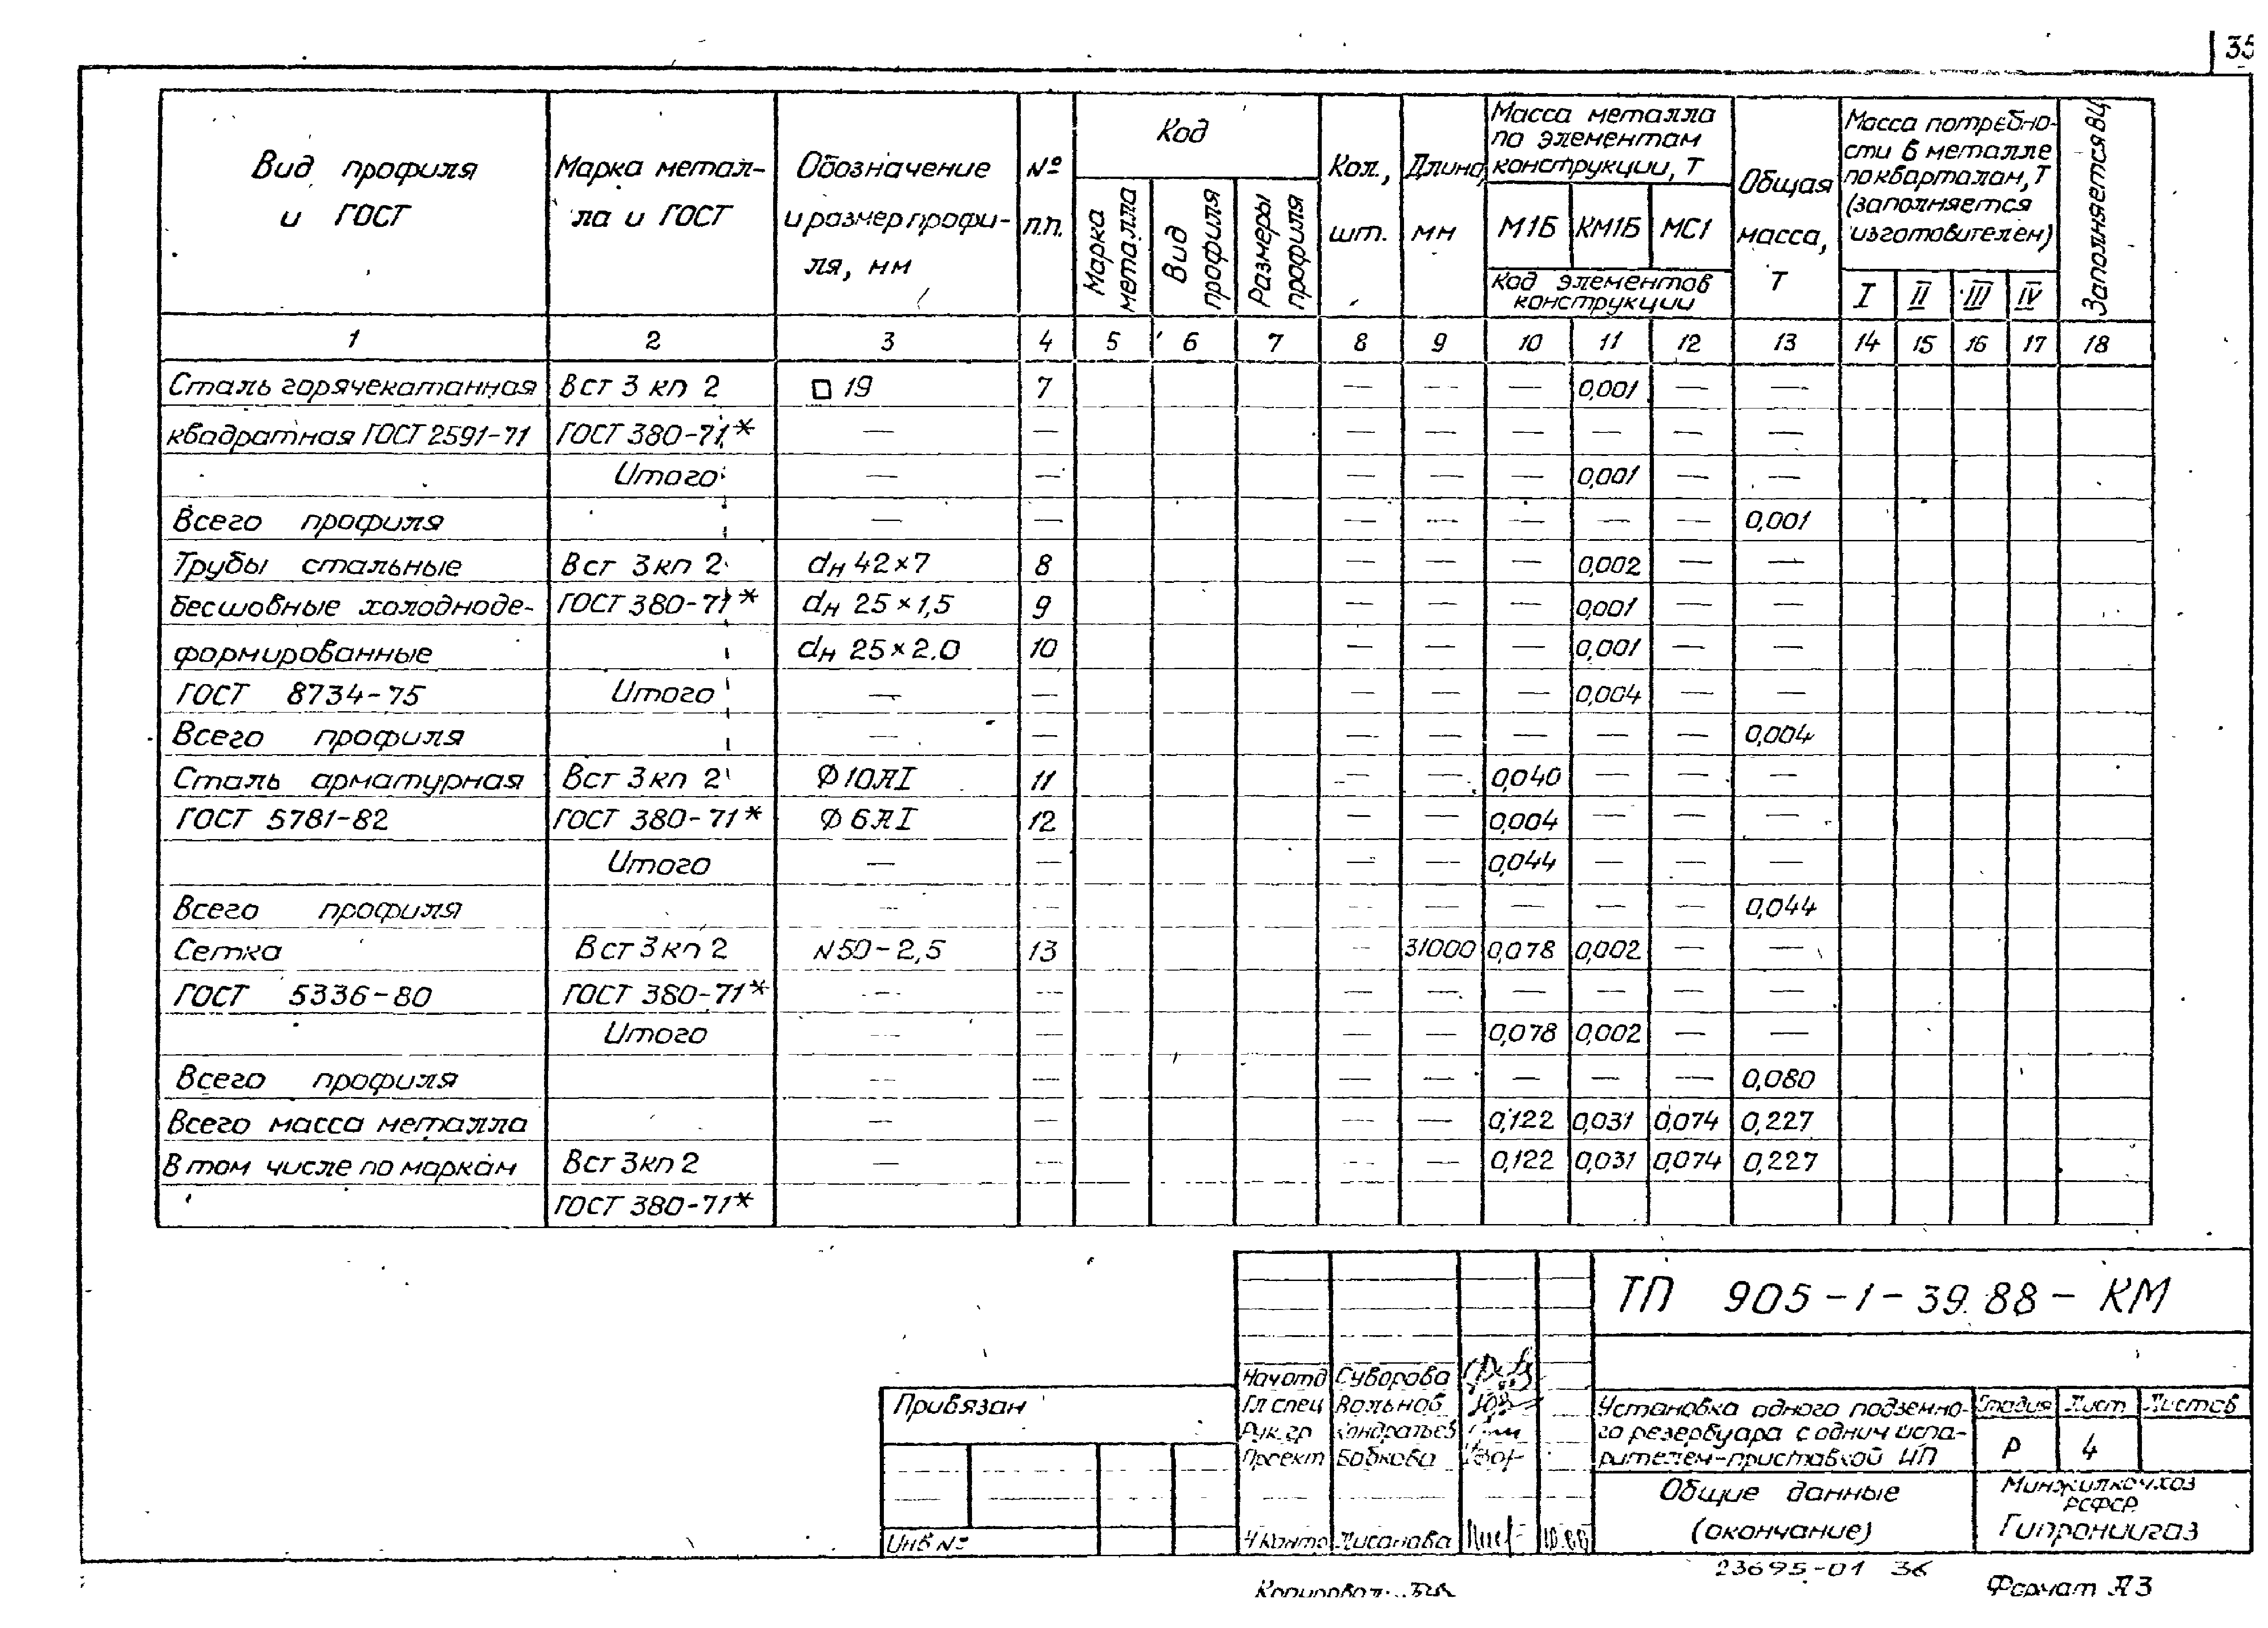 35
Вид профиля и ГОСТ
Марка метал-ла и ГОСТ
Обозначение и размер профи-ля, мм
№ п.п.
Код
Марка металла
Вид профиля
Размеры профиля
Кол., шт.
Длина, мм
Масса металла по элементам конструкции, Т
М1Б КМ1Б МС1
Код элементов конструкции
Общая масса, Т
Масса потребно-сти в металле по кварталам, Т (заполняется изготовителем)
I II III IV
Заполняется ВЦ
1 2 3 4 5 6 7 8 9 10 11 12 13 14 15 16 17 18
Сталь горячекатанная Вст 3 кп 2 □ 19 7 — — — 0,001 — —
квадратная ГОСТ 2591-71 ГОСТ 380-71* — — — — — — — —
Итого — — — — — 0,001 — —
Всего профиля — — — — — — — 0,001
Трубы стальные Вст 3кп 2 dн 42×7 8 — — — 0,002 — —
бесшовные холодноде- ГОСТ 380-71* dн 25×1,5 9 — — — 0,001 — —
формированные dн 25×2.0 10 — — — 0,001 — —
ГОСТ 8734-75 Итого — — — — — 0,004 — —
Всего профиля — — — — — — — 0,004
Сталь арматурная Вст 3кп 2 Ø10АI 11 — — 0,040 — — —
ГОСТ 5781-82 ГОСТ 380-71* Ø6АI 12 — — 0,004 — — —
Итого — — — — 0,044 — — —
Всего профиля — — — — — — — 0,044
Сетка Вст 3кп 2 N50-2,5 13 — 31000 0,078 0,002 — —
ГОСТ 5336-80 ГОСТ 380-71* — — — — — — — —
Итого — — — — 0,078 0,002 — —
Всего профиля — — — — — — — 0,080
Всего масса металла — — — 0,122 0,031 0,074 0,227
В том числе по маркам Вст 3кп 2 — — — — 0,122 0,031 0,074 0,227
ГОСТ 380-71*
ТП 905-1-39.88-КМ
Нач отд Суворова
Гл спец Вольнов
Рук. гр Кондратьев
Проект Бабкова
Н контр Лисанова 10.88
Привязан
Инв №
Установка одного подземно-
го резервуара с одним испа-
рителем-приставкой ИП
Стадия Лист Листов
Р 4
Общие данные
(окончание)
Минжилкомхоз
РСФСР
Гипрониигаз
23695-01 36
Копировал:
Формат А3